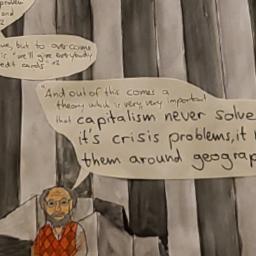 problem
and
?
ue, but to overcome
is "we'll give everybody
edit cards" "2
"And out of this comes a
theory which is very, very important
that capitalism never solve
it's crisis problems, it
them around geograp